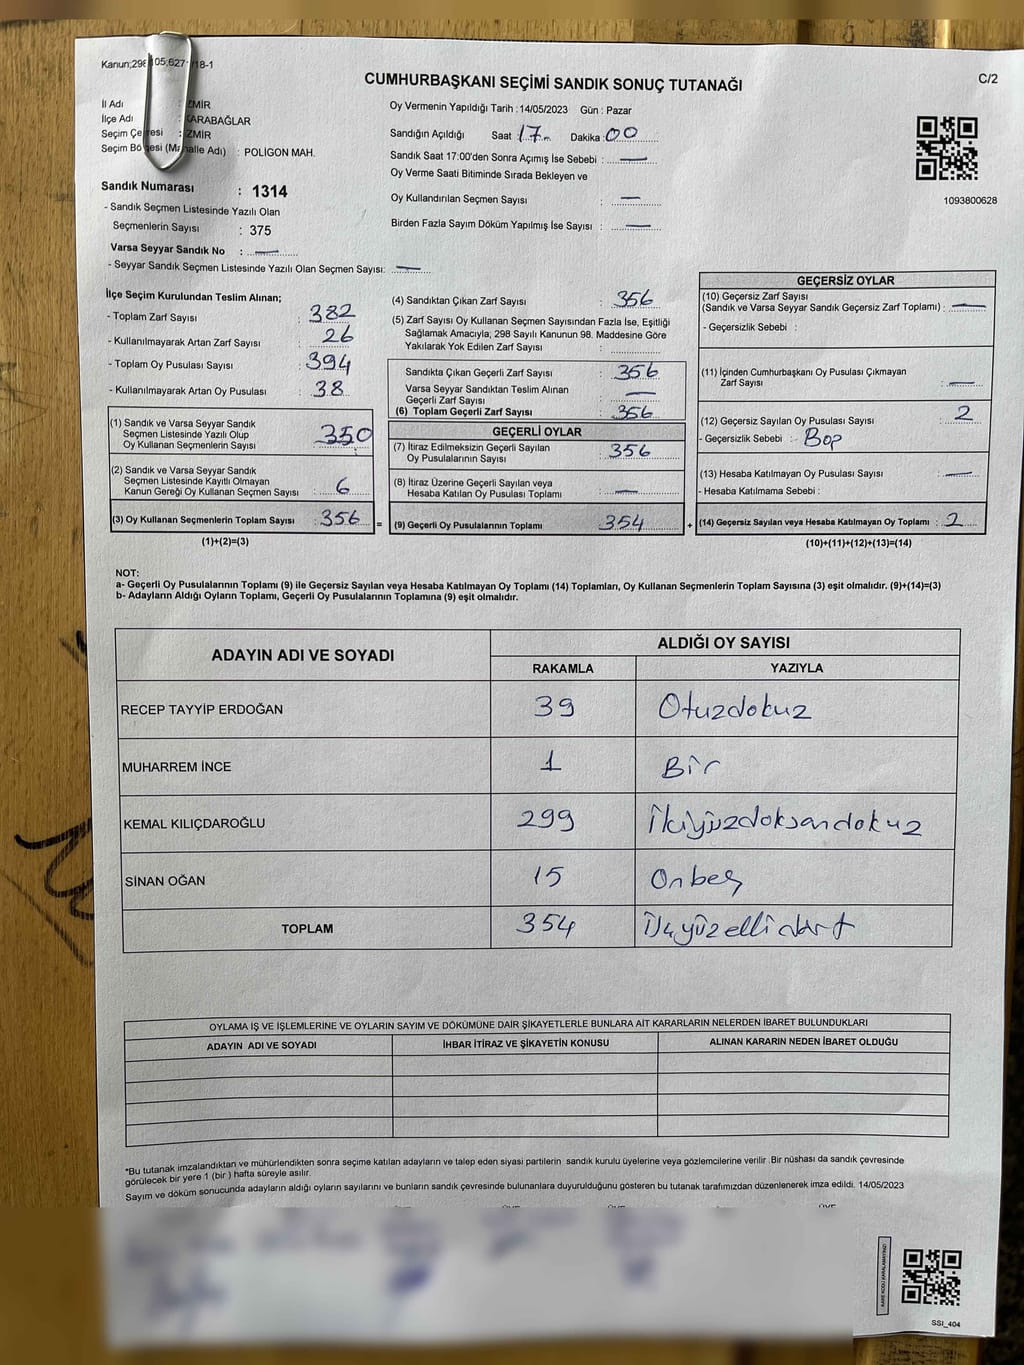 Kanun;298 105;627 /18-1
CUMHURBAŞKANI SEÇİMİ SANDIK SONUÇ TUTANAĞI
C/2
İl Adı : İZMİR
İlçe Adı : KARABAĞLAR
Seçim Çe resi : İZMİR
Seçim Bö esi (Ma alle Adı) : POLİGON MAH.
Sandık Numarası : 1314
- Sandık Seçmen Listesinde Yazılı Olan
Seçmenlerin Sayısı : 375
Varsa Seyyar Sandık No : —
- Seyyar Sandık Seçmen Listesinde Yazılı Olan Seçmen Sayısı: —
Oy Vermenin Yapıldığı Tarih : 14/05/2023 Gün : Pazar
Sandığın Açıldığı Saat 17 Dakika 00
Sandık Saat 17:00'den Sonra Açımış İse Sebebi : —
Oy Verme Saati Bitiminde Sırada Bekleyen ve
Oy Kullandırılan Seçmen Sayısı : —
Birden Fazla Sayım Döküm Yapılmış İse Sayısı : —
1093800628
İlçe Seçim Kurulundan Teslim Alınan;
- Toplam Zarf Sayısı : 382
- Kullanılmayarak Artan Zarf Sayısı : 26
- Toplam Oy Pusulası Sayısı : 394
- Kullanılmayarak Artan Oy Pusulası : 38
(1) Sandık ve Varsa Seyyar Sandık
Seçmen Listesinde Yazılı Olup
Oy Kullanan Seçmenlerin Sayısı : 350
(2) Sandık ve Varsa Seyyar Sandık
Seçmen Listesinde Kayıtlı Olmayan
Kanun Gereği Oy Kullanan Seçmen Sayısı : 6
(3) Oy Kullanan Seçmenlerin Toplam Sayısı : 356 =
(1)+(2)=(3)
(4) Sandıktan Çıkan Zarf Sayısı : 356
(5) Zarf Sayısı Oy Kullanan Seçmen Sayısından Fazla İse, Eşitliği
Sağlamak Amacıyla; 298 Sayılı Kanunun 98. Maddesine Göre
Yakılarak Yok Edilen Zarf Sayısı :
Sandıkta Çıkan Geçerli Zarf Sayısı : 356
Varsa Seyyar Sandıktan Teslim Alınan
Geçerli Zarf Sayısı : —
(6) Toplam Geçerli Zarf Sayısı : 356
GEÇERLİ OYLAR
(7) İtiraz Edilmeksizin Geçerli Sayılan
Oy Pusulalarının Sayısı : 356
(8) İtiraz Üzerine Geçerli Sayılan veya
Hesaba Katılan Oy Pusulası Toplamı : —
(9) Geçerli Oy Pusulalarının Toplamı : 354 +
GEÇERSİZ OYLAR
(10) Geçersiz Zarf Sayısı
(Sandık ve Varsa Seyyar Sandık Geçersiz Zarf Toplamı) : —
- Geçersizlik Sebebi :
(11) İçinden Cumhurbaşkanı Oy Pusulası Çıkmayan
Zarf Sayısı : —
(12) Geçersiz Sayılan Oy Pusulası Sayısı : 2
- Geçersizlik Sebebi :
(13) Hesaba Katılmayan Oy Pusulası Sayısı : —
- Hesaba Katılmama Sebebi :
(14) Geçersiz Sayılan veya Hesaba Katılmayan Oy Toplamı : 2
(10)+(11)+(12)+(13)=(14)
NOT:
a- Geçerli Oy Pusulalarının Toplamı (9) ile Geçersiz Sayılan veya Hesaba Katılmayan Oy Toplamı (14) Toplamları, Oy Kullanan Seçmenlerin Toplam Sayısına (3) eşit olmalıdır. (9)+(14)=(3)
b- Adayların Aldığı Oyların Toplamı, Geçerli Oy Pusulalarının Toplamına (9) eşit olmalıdır.
ADAYIN ADI VE SOYADI ALDIĞI OY SAYISI
RAKAMLA YAZIYLA
RECEP TAYYİP ERDOĞAN 39 Otuzdokuz
MUHARREM İNCE 1 Bir
KEMAL KILIÇDAROĞLU 299 İkiyüzdoksandokuz
SİNAN OĞAN 15 Onbeş
TOPLAM 354
OYLAMA İŞ VE İŞLEMLERİNE VE OYLARIN SAYIM VE DÖKÜMÜNE DAİR ŞİKAYETLERLE BUNLARA AİT KARARLARIN NELERDEN İBARET BULUNDUKLARI
ADAYIN ADI VE SOYADI İHBAR İTİRAZ VE ŞİKAYETİN KONUSU ALINAN KARARIN NEDEN İBARET OLDUĞU
*Bu tutanak imzalandıktan ve mühürlendikten sonra seçime katılan adayların ve talep eden siyasi partilerin sandık kurulu üyelerine veya gözlemcilerine verilir. Bir nüshası da sandık çevresinde
görülecek bir yere 1 (bir) hafta süreyle asılır.
Sayım ve döküm sonucunda adayların aldığı oyların sayılarını ve bunların sandık çevresinde bulunanlara duyurulduğunu gösteren bu tutanak tarafımızdan düzenlenerek imza edildi. 14/05/2023
SSI_404